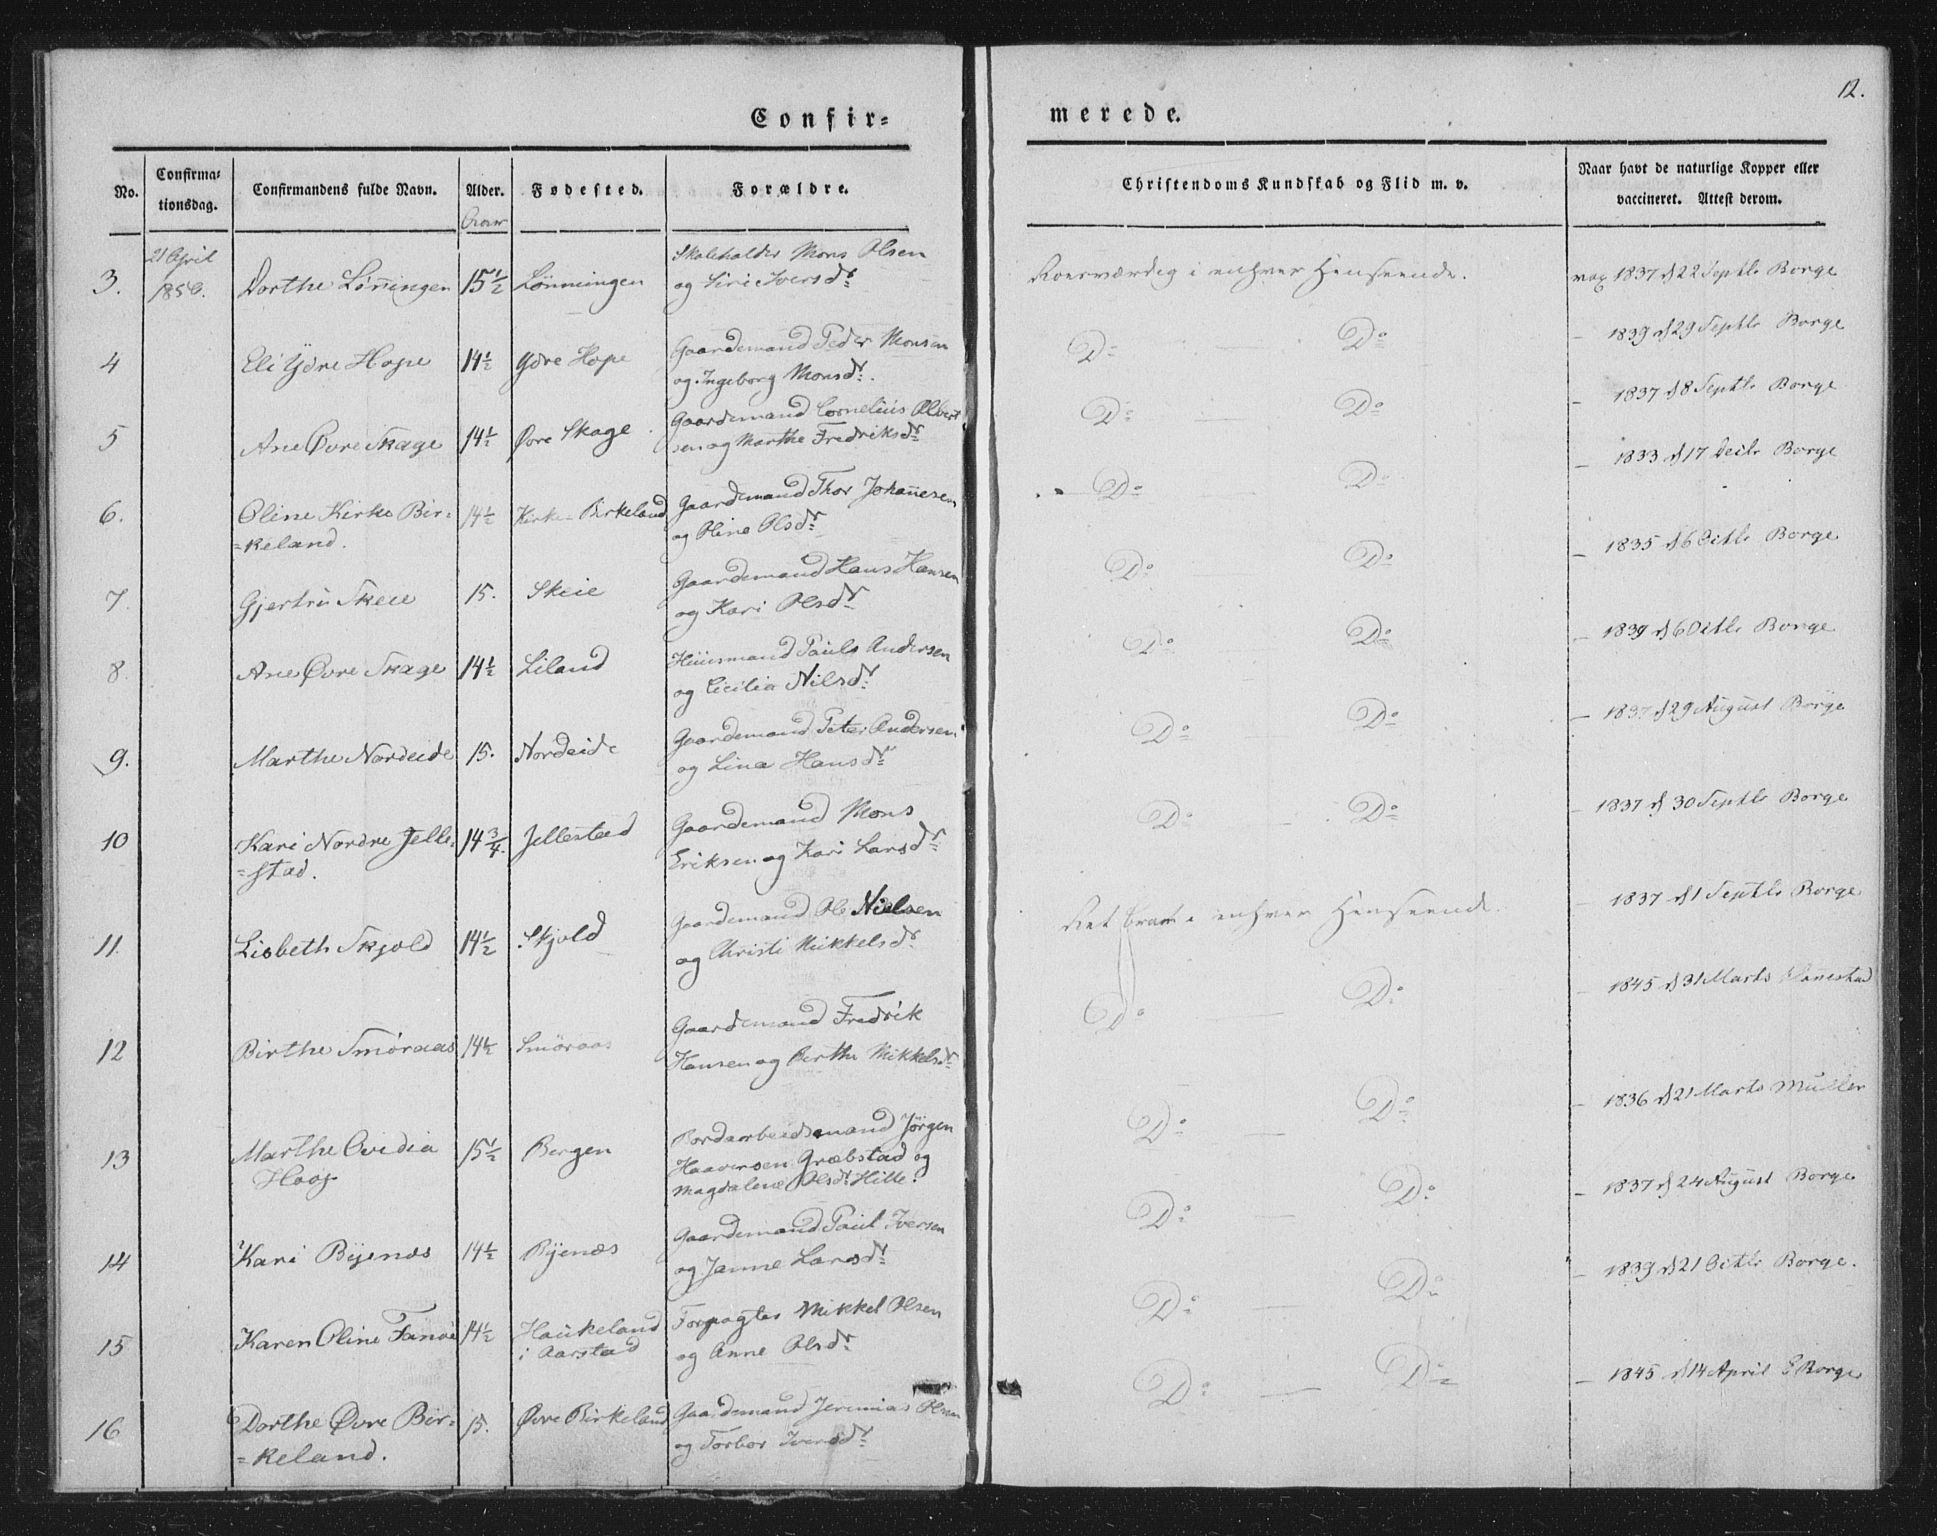 12.
Confir-
merede.
No.
Confirma-
tionsdag.
Confirmandens fulde Navn.
Alder.
Aar
Fødested.
Forældre.
Christendoms Kundskab og Flid m. v.
Naar havt de naturlige Kopper eller
vaccineret. Attest derom.
3.
21 April
1850.
Dorthe Lönningen
15½
Lönningen
Skoleholder Mons Olsen
og Siri Iversdr
Roesværdig i enhver Henseende.
vax 1837 d 22 Septbr Borge
4
Eli Ydre Hope
14½
Ydre Hope
Gaardemand Peder Monsen
og Ingeborg Monsdr.
Do — Do
— 1839 d 29 Septbr Borge
5
Ane Øvre Skage
14½
Øvre Skage
Gaardemand Cornelius Albert
sen og Marthe Fredriksdr
Do — Do
— 1837 d 8 Septbr Borge
6.
Oline Kirke Bir-
-keland.
14½
Kirke-Birkeland
Gaardemand Thor Johannesen
og Oline Olsdr
Do — Do
— 1833 d 17 Borge
7.
Gjertru Skeie
15.
Skeie
Gaardemand Hans Hansen
og Kari Olsdr
Do — Do
— 1835 d 6 Octbr Borge
8.
Ane Øvre Skage
14½
Liland
Huusmand Pauls Andersen
og Cicilia Nilsdr
Do Do
— 1839 d 6 Octbr Borge
9.
Marthe Nordeide
15.
Nordeide
Gaardemand Peter Andersen
og Lina Hansdr
Do — Do
— 1837 d 29 August Borge
10
Kari Nordre Jelle-
-stad.
14¾.
Jellestad
Gaardemand Mons
Eriksen og Kari Larsdr
Do — Do
— 1837 d 30 Septbr Borge
11.
Lisbeth Skjold
14½
Skjold
Gaardemand Ole Nielsen
og Christi Mikkelsdr
Ret brav i enhver Henseende.
— 1837 d 1 Septbr Borge
12
Birthe Smöraas
14½
Smöraas
Gaardemand Fredrik
Hansen og Berthe Mikkelsdr
Do — Do
— 1845 d 31 Marts
13
Marthe Ovidia
Haag
15½
Bergen
Bordarbeidsmand Jörgen
Haaversen Græbstad og
Magdalene Olsdr Hille.
Do — Do
— 1836 d 21 Marts Müller
14
Kari Byenæs
14½
Byenæs
Gaardemand Paul Iversen
og Janne Larsdr
Do — Do
— 1837 d 24 August Borge
15
Karen Oline Fanøe
14½
Haukeland
i Aarstad
Forpagter Mikkel Olsen
og Anne Olsdr
Do — Do
— 1839 d 21 Octbr Borge.
16
Dorthe Øvre Bir-
-keland.
15.
Øvre Birkeland
Gaardemand Jeremias Olsen
og Torbor Iversdr
Do — Do
— 1845 d 14 April Borge